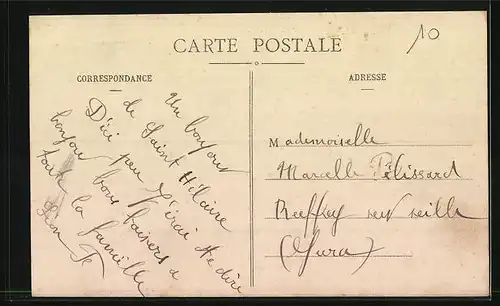 10
CARTE POSTALE
CORRESPONDANCE
ADRESSE
Un bonjour
de Saint Hilaire
D'ici peu j'irai te dire
bonjour bons baisers a
toute la famille
Mademoiselle
Marcelle Pélissard
sur seille
(Jura)